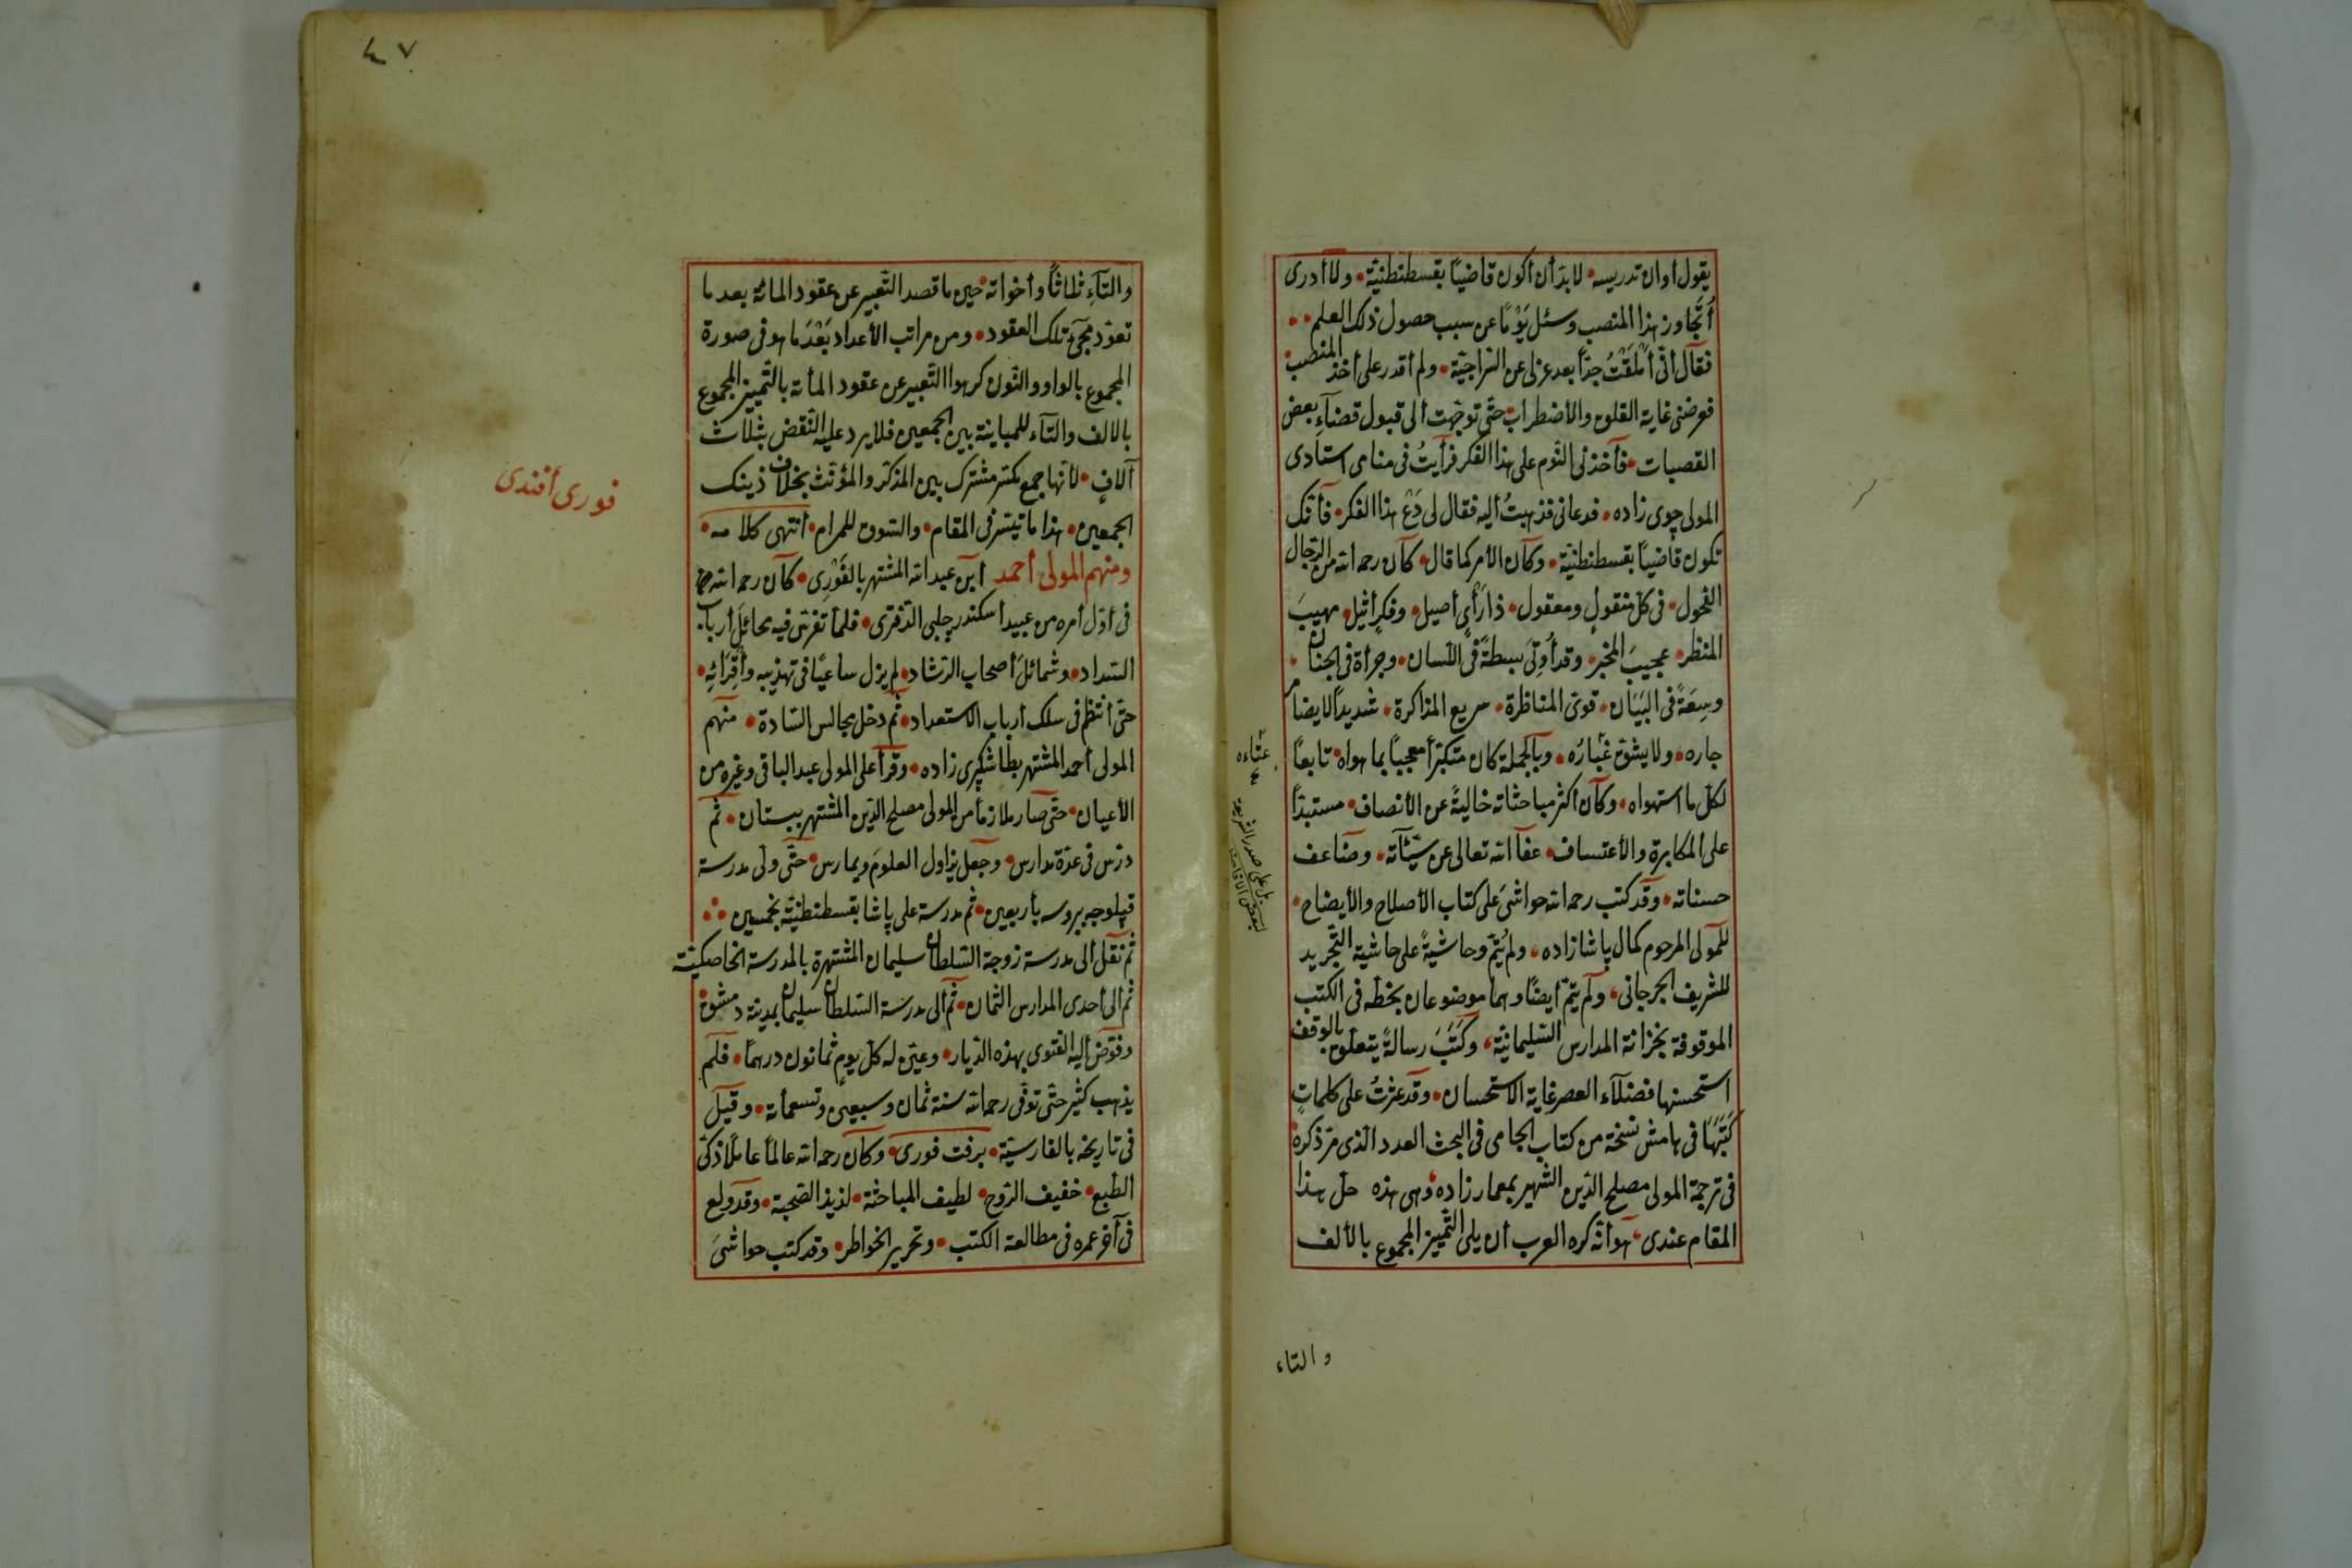 يقول أوان تدريسه لا بدّ أن أكون قاضيًا بقسطنطنيّة ولا أدرى
أتجاوز هذا المنصب وسئل يَوْمًا عن سبب حصول ذلك العلم
فقال انّى أملقتُ جدّا بعد عزلى عن ولم أقدر على أخذ المنصب
فعرضنى غاية القلق والأضطراب حتّى توجّهت ألى قبول قضآء بعض
القصبات فأخذنى النّوم على هذا الفكر فرأيتُ فى منامى استادى
المولى چوى زاده فدعانى فذهبتُ أليه فقال لى دَعْ هذا الفكر فأنّك
تكون قاضيًا بقسطنطنيّة وكان الأمر كما قال كان رحمه الله من الرّجال
الفحول فى كلّ منقول ومعقول ذا رَأْىٍ أصيل وفكر أثيل مهيبَ
المنظر عجيبَ المخبر وقد أُوتِىَ بسطةً فى اللّسان وجرأة فى الجنان
وسِعَةً فى البَيَان قوىّ المناظرة سريع المذاكرة شديدًا لا يضام
جاره ولا يشقّ غُبارُه وبالجملة كان متكبّرًا معجبًا بما هواه تابعًا
لكلّ ما استهواه وكان أكثر مباحثاته خاليةً عن الأنصاف مستبدًّا
على المكابرة والأعتساف عفا الله تعالى عن سيّئآته وضاعف
حسناته وقد كتب رحمه الله حواشىَ على كتاب الأصلاح والأيضاح
للمولى المرحوم كمال پاشا زاده ولم يُتمّ وحاشيةً على حاشية التّجريد
للشريف الجرجانى ولم يتمّ أيضًا وهما موضوعان بخطّه فى الكتب
الموقوفة بخزانة المدارس السّليمانيّة وكَتَبَ رسالةً يتعلّق بالوقف
استحسنها فضلآء العصر غاية الاستحسان وقد عثرتُ على كلماتٍ
كَتَبَهَا فى هامش نسخة من كتاب الجامى فى البحث العدد الّذى مرّ ذكره
فى ترجمة المولى مصلح الدّين الشهير بمعمار زاده وهى هذه حلّ هذا
المقام عندى هو أنّه كره العرب أن يلى التّمييز المجموع بالألف
والتاء
٤٧
والتآءِ ثلاثًا وأخواته حين ما قصد التّعبير عن عقود المائة بعد ما
تعوّد مجئ تلك العقود ومن مراتب الأعداد بَعْدَ ما هو فى صورة
المجموع بالواو والنّون كرهوا التّعبير عن عقود المأئة بالتّمييز المجموع
بالالف والتآء للمباينة بين الجمعين فلا يرد عليه النّقض بثلاث
آلافٍ لأنّها جمع مكسّر مشترك بين المذكّر والمؤنّث بخلاف ذينك
الجمعين هذا ما تيسّر فى المقام والسّوق للمرام أنتهى كلامه
ومنهم المولى أحمد ابن عبد الله المشتهر بالفَوْرِى كان رحمه الله
فى أوّل أمره من عبيد أسكندر چلبى الدّفترى فلمّا تفرّس فيه مخائلَ أرباب
السّداد وشمائلَ أصحاب الرّشاد لم يزل ساعيًا فى تهذيبه وأقرَائِه
حتّى أنتظم فى سلك أرباب الاستعداد ثمّ دخل مجالس السّادة منهم
المولى أحمد المشتهر بطاشكپرى زاده وقرأ على المولى عبد الباقى وغيره من
الأعيان حتّى صار ملازمًا من المولى مصلح الدّين المشتهر ببستان ثمّ
درّس فى عدّة مدارس وجعل يزاول العلومَ ويمارس حتّى ولى مدرسة
قپلوجه ببروسه بأربعين ثمّ مدرسة على پاشا بقسطنطنيّة بخمسين
ثمّ نقل ألى مدرسة زوجة السّلطان سليمان المشتهرة بالمدرسة الخاصكيّة
ثمّ الى أحدى المدارس الثّمان ثمّ ألى مدرسة السّلطان سليمان بمدينة دمشق
وفوّض أليه الفتوى بهذه الدّيار وعيّن له كلّ يومٍ ثمانون درهمًا فلم
يذهب كثير حتّى توفّى رحمه الله سنة ثمان وسبعين وتسعمأئة وقيل
فى تاريخه بالفارسيّة برفت فورى وكان رحمه الله عالمًا عاملًا ذكىّ
الطّبع خفيف الرّوح لطيف المباحثة لذيذ الصّحبة وقد ولع
فى آخر عمره فى مطالعة الكتب وتحرير الخواطر وقد كتب حواشىَ
فورى أفندى